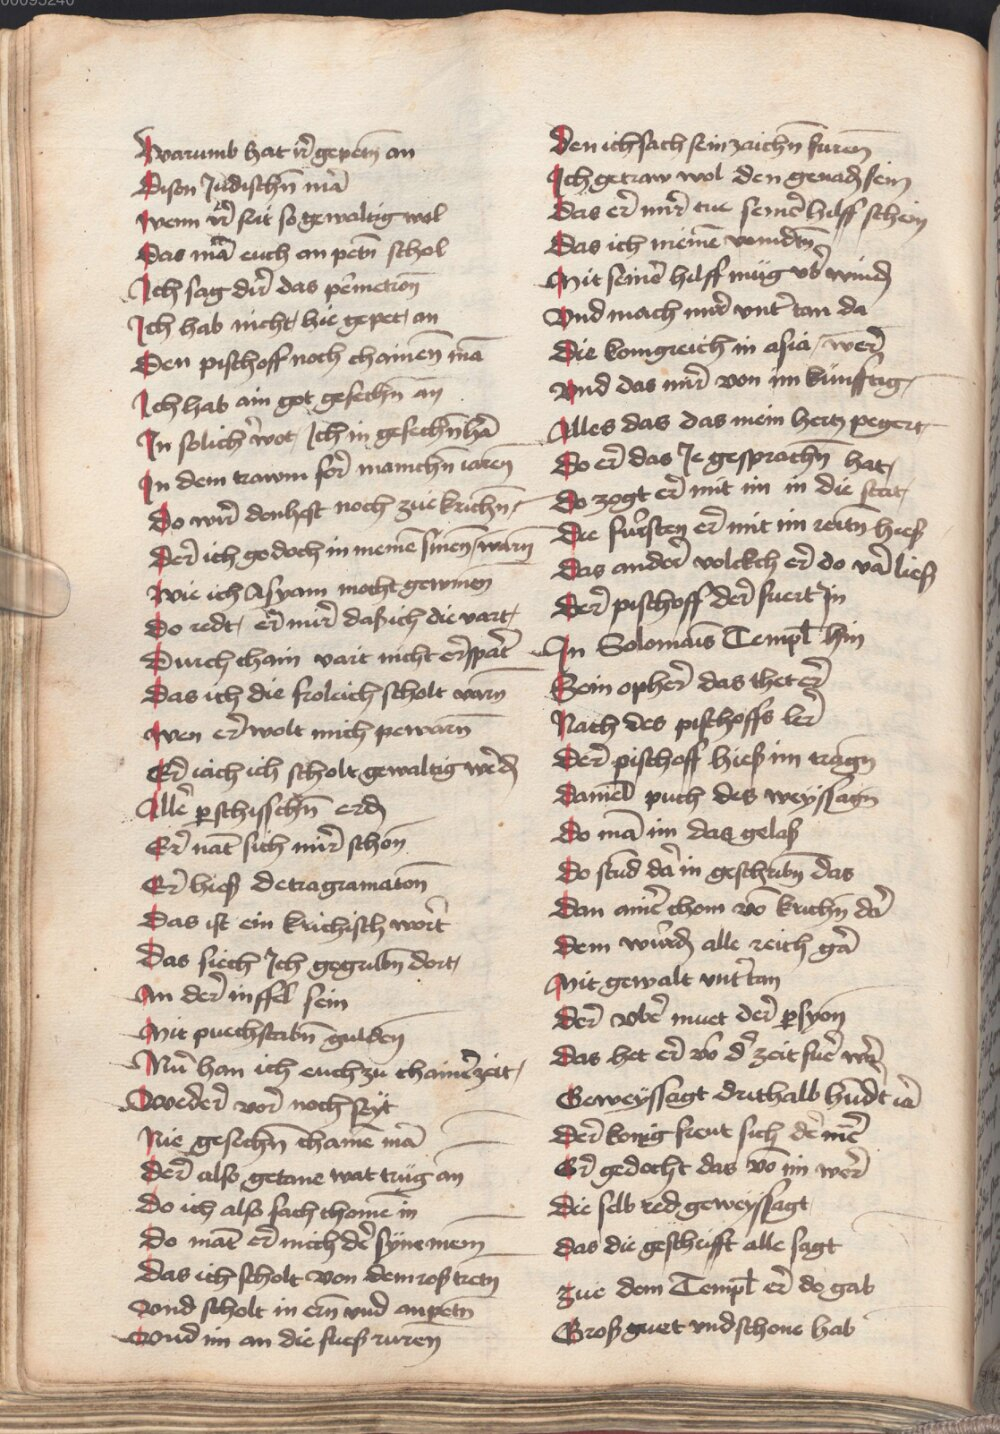 Warumb hat ir̄ gepetn̄ an
Disen Judischn̄ mā
Wenn ir̄ seit so gewaltig wol
Das mā euch an petn̄ schol
Ich sag dir̄ das pemetron̄
Ich hab nicht hie gepet an
Den pischoff noch chainen mā
Ich hab ain got gesechn̄ an
In solicher wot Ich in gesechn̄ hā
In dem trawm for̄ manichn̄ iaren
Do wir̄ denhest noch zue krichn̄
Der̄ ich gedoch in meinē sinen warn̄
Wie ich Asyam mocht gewinen
Do redt er mir̄ das ich die vart
Durch chain vart nicht erspart
Das ich die froleich scholt varn̄
Wen er wolt mich pewarn̄
Er iach ich scholt gewaltig werdn̄
Aller perschisschn̄ erdn̄
Er̄ nāt sich mir̄ schon
Er̄ hies detragramaton̄
Das ist ein krichisch wort
Das siech Ich gegribn̄ dort
An der̄ inffel sein
Mit puechstabn̄ gulden
Nū han ich euch zu chainer zeit
Weder̄ vor̄ noch seyt
Nie gesechn̄ chainē mā
Der̄ also getane wat trüg an
Do ich also sach chomē in
Do māt er̄ mich der̄ synne mein
Das ich scholt von dem ros tretn̄
Vnd scholt in ern̄ vnd anpetn̄
Vnd im an die fues ruren̄
Den ich sach sein zaichn̄ furen̄
Ich getraw wol den genadn̄ sein
Das er̄ mir̄ tue seiner hilff schein
Das ich meinē veindtn̄
Mit seiner hilff müg vber windn̄
Vnd mach mir̄ vnter tan da
Die konigreich in asia wer̄
Vnd das mir̄ von im künfftig
Alles das das mein hertz pegert
Do er̄ das Je gesprochn̄ hat
Do zogt er̄ mit im in die stat
Die fursten er̄ mit im reitn̄ hies
Das ander̄ volckch er̄ do vā lies
Der̄ pischoff der̄ fuert in
In Solomāis Templ̄ hin
Sein opher̄ das thet er̄
Nach des pischoffs ler̄
Der̄ pischoff hies im tragn̄
Daniel puch des weyssagn̄
Do mā im das gelas
Do stūd dar in geschribn̄ das
Dan ainer chom vō krichn̄ dar
Dem wurdn̄ alle reich gar
Mit gewalt vnter tan
Der̄ vber muet der̄ persyon̄
Das het er̄ vō der zeit fuer war
Geweyssagt drithalb hūdt iar
Der̄ konig freut sich der mer
Er̄ gedocht das vō im wer̄
Die selb red geweyssagt
Das die geschrifft alle sagt
Zue dem Templ̄ er̄ do gab
Gros guet vnd schone hab